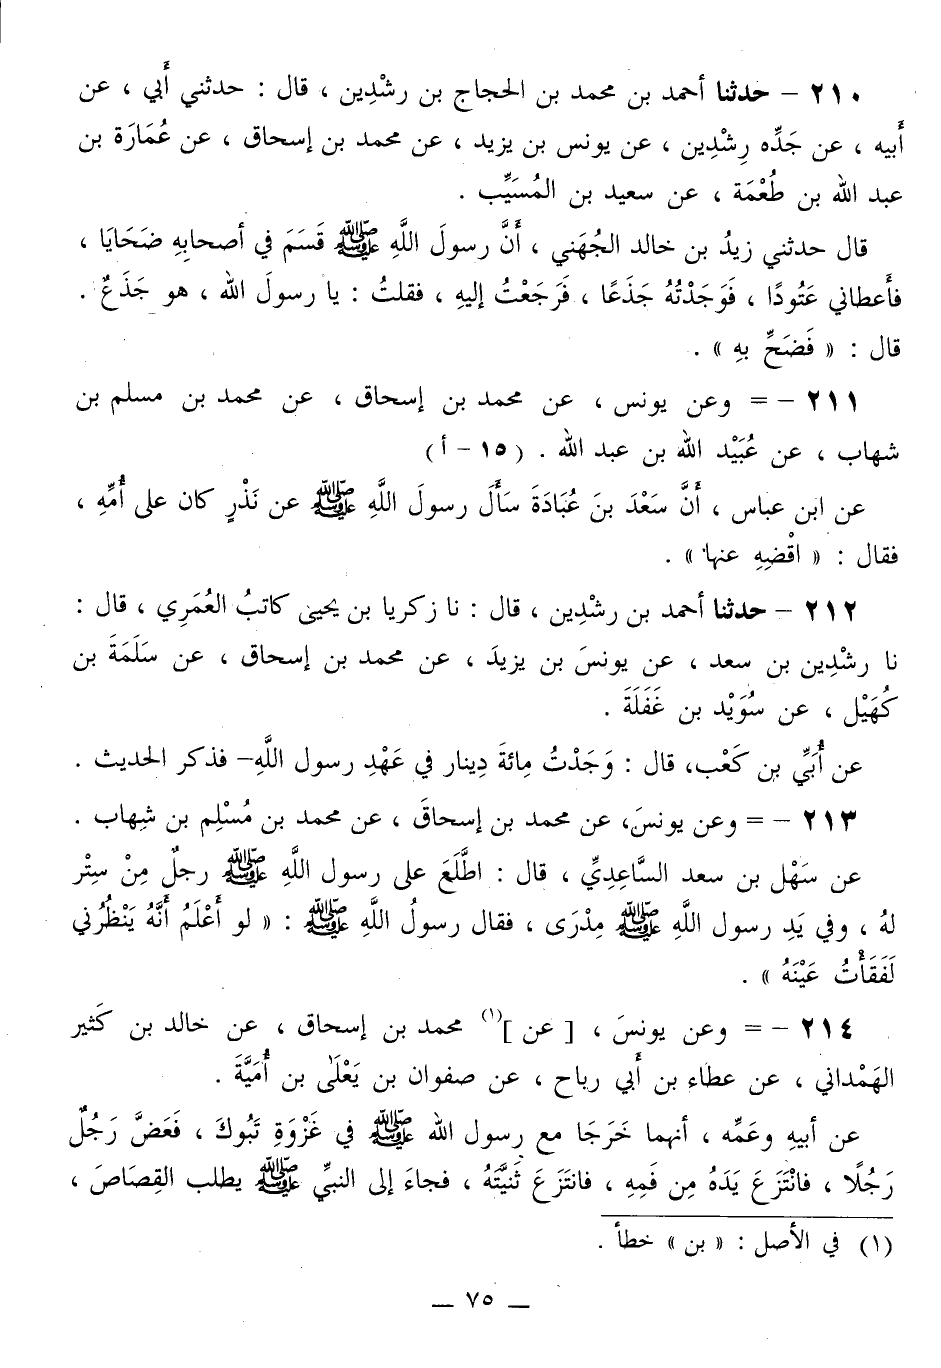 ٢١٠ – حدثنا أحمد بن محمد بن الحجاج بن رشْدِين ، قال : حدثني أَبي ، عن
أَبيه ، عن جَدِّه رِشْدِين ، عن يونس بن يزيد ، عن محمد بن إسحاق ، عن عُمَارَة بن
عبد الله بن طُعْمَة ، عن سعيد بن المُسَيِّب .
قال حدثني زيدُ بن خالد الجُهَني ، أَنَّ رسولَ اللَّهِ ﷺ قَسَمَ في أصحابِهِ ضَحَايَا ،
فأَعطاني عَتُودًا ، فَوَجَدْتُهُ جَذَعًا ، فَرَجَعْتُ إليهِ ، فقلتُ : يا رسولَ الله ، هو جَذَعٌ .
قال : « فَضَحِّ بهِ » .
٢١١ – = وعن يونس ، عن محمد بن إسحاق ، عن محمد بن مسلم بن
شهاب ، عن عُبَيْد الله بن عبد الله . (١٥ – أ)
عن ابن عباس ، أَنَّ سَعْدَ بنَ عُبَادَةَ سَأَلَ رسولَ اللَّهِ ﷺ عن نَذْرٍ كان على أُمِّهِ ،
فقال : « اقْضِهِ عنها » .
٢١٢ – حدثنا أحمد بن رشْدِين ، قال : نا زكريا بن يحيى كاتبُ العُمَرِي ، قال :
نا رشْدِين بن سعد ، عن يونسَ بن يزيدَ ، عن محمد بن إسحاق ، عن سَلَمَةَ بن
كُهَيْل ، عن سُوَيْد بن غَفَلَةَ .
عن أُبَيِّ بن كَعْب، قال : وَجَدْتُ مِائةَ دِينار في عَهْدِ رسول اللَّهِ– فذكر الحديث .
٢١٣ – = وعن يونسَ، عن محمد بن إسحاقَ ، عن محمد بن مُسْلِم بن شِهاب .
عن سَهْل بن سعد السَّاعِدِيِّ ، قال : اطَّلَعَ على رسول اللَّهِ ﷺ رجلٌ مِنْ سِتْر
لهُ ، وفي يَدِ رسول اللَّهِ ﷺ مِدْرَى ، فقال رسولُ اللَّهِ ﷺ : « لو أَعْلَمُ أَنَّهُ يَنْظُرُني
لَفَقَأْتُ عَيْنَهُ » .
٢١٤ – = وعن يونسَ ، [ عن ](١) محمد بن إسحاق ، عن خالد بن كَثير
الهَمْداني ، عن عطاء بن أَبي رباح ، عن صفوان بن يَعْلَىٰ بن أُمَيَّةَ .
عن أبيهِ وعَمِّه ، أنهما خَرَجَا مع رسول الله ﷺ في غَزْوَةِ تَبُوكَ ، فَعَضَّ رَجُلٌ
رَجُلًا ، فانْتَزَعَ يَدَهُ مِن فَمِهِ ، فانتَزَعَ ثَنيَّتَهُ ، فجاءَ إلى النبيِّ ﷺ يطلب القِصَاصَ ،
(١) في الأصل : « بن » خطأ .
— ٧٥ —